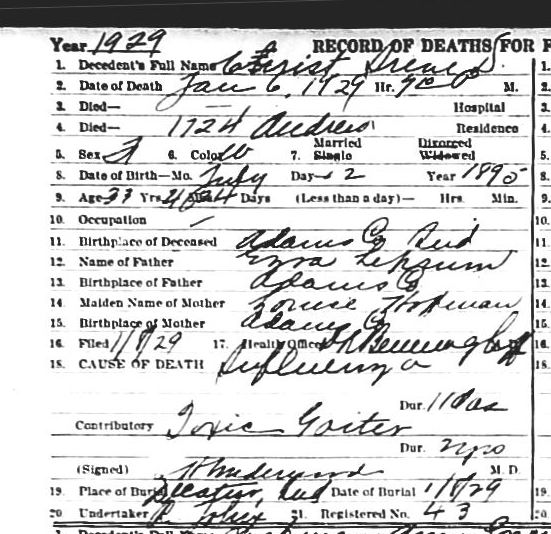 Year 1929 RECORD OF DEATHS FOR F
1. Decedent's Full Name Christ Irene D.
2. Date of Death Jan 6, 1929 Hr. M.
3. Died— Hospital
4. Died— 1724 Andrew Residence
5. Sex F 6. Color W 7. Married Single Divorced Widowed
8. Date of Birth—Mo. July Day 2 Year 1895
9. Age 33 Yrs. Days (Less than a day)— Hrs. Min.
10. Occupation —
11. Birthplace of Deceased Adams Co Ind
12. Name of Father Ezra
13. Birthplace of Father Adams Co
14. Maiden Name of Mother Louise
15. Birthplace of Mother Adams Co
16. Filed 1/8/29 17. Health Officer M.D.
18. CAUSE OF DEATH Influenza
Dur. 11 Das
Contributory Toxic Goiter
Dur. 2 yrs
(Signed) M. D.
19. Place of Burial Decatur, Ind Date of Burial 1/8/29
20. Undertaker 21. Registered No. 43